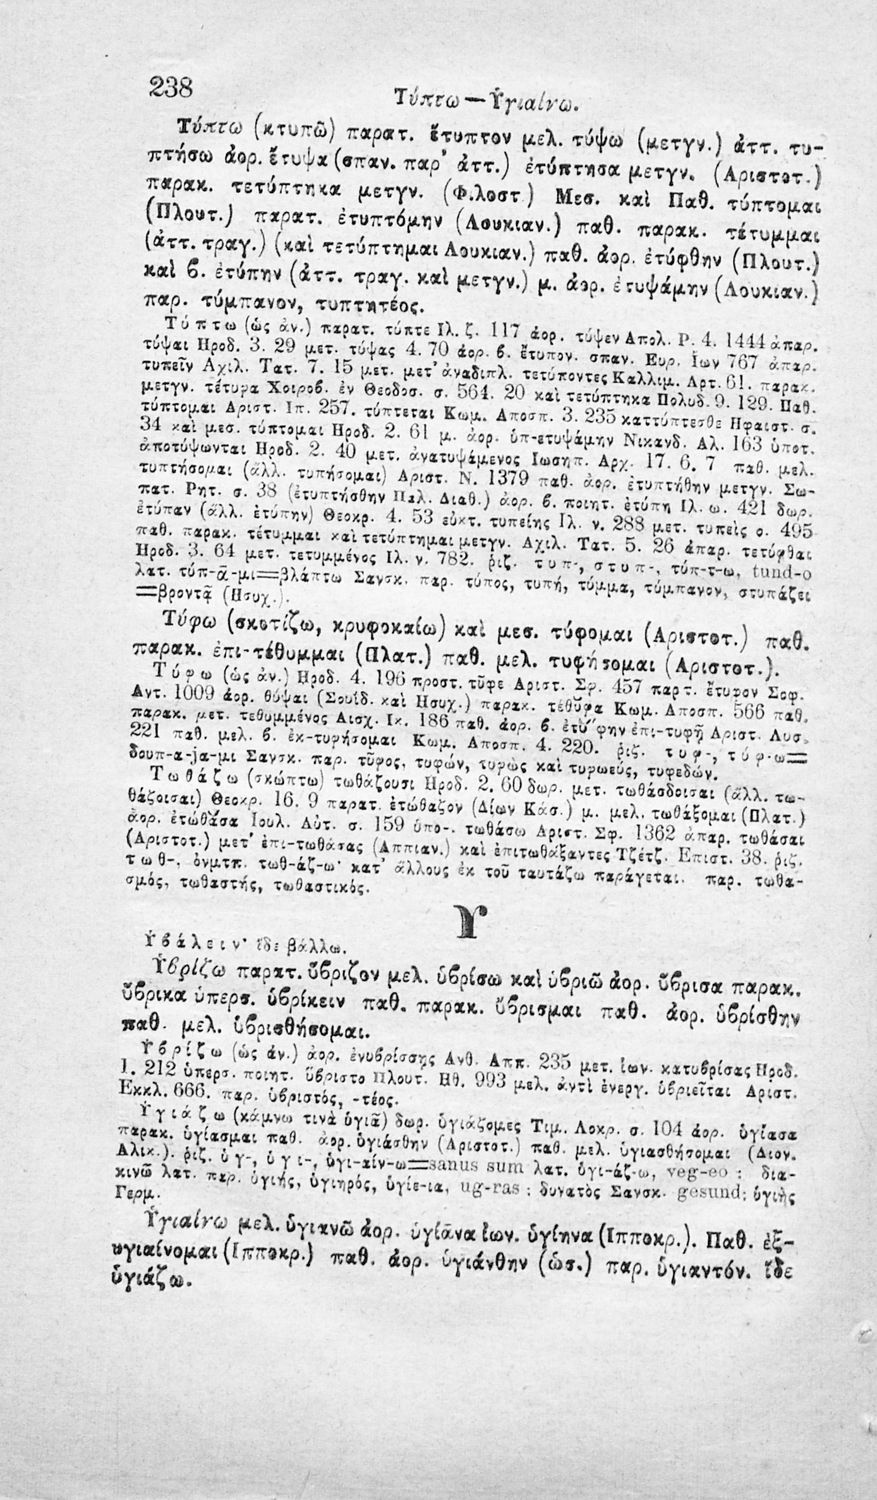 238
Τύπτω — Ὑγιαίνω.
Τύπτω (κτυπῶ) παρατ. ἔτυπτον μελ. τύψω (μετγν.) ἀττ. τυ-
πτήσω ἀορ. ἔτυψα (σπαν. παρ' ἀττ.) ἐτύπτησα μετγν. (Αριστοτ.)
παρακ. τετύπτηκα μετγν. (Φιλοστ.) Μεσ. καὶ Παθ. τύπτομαι
(Πλουτ.) παρατ. ἐτυπτόμην (Λουκιαν.) παθ. παρακ. τέτυμμαι
(ἀττ. τραγ.) (καὶ τετύπτημαι Λουκιαν.) παθ. ἀορ. ἐτύφθην (Πλουτ.)
καὶ ϐ. ἐτύπην (ἀττ. τραγ. καὶ μετγν.) μ. ἀορ. ἐτυψάμην (Λουκιαν.)
παρ. τύμπανον, τυπτητέος.
Τύπτω (ὡς ἀν.) παρατ. τύπτε Ιλ. ζ. 117 ἀορ. τύψεν Απολ. Ρ. 4. 1444 ἀπαρ.
τύψαι Ηροδ. 3. 29 μετ. τύψας 4. 70 ἀορ. ϐ. ἔτυπον. σπαν. Ευρ. Ιων 767 ἀπαρ.
τυπεῖν Αχιλ. Τατ. 7. 15 μετ. μετ' ἀναδιπλ. τετύποντες Καλλιμ. Αρτ. 61. παρακ.
μετγν. τέτυφα Χοιροϐ. ἐν Θεοδοσ. σ. 564. 20 καὶ τετύπτηκα Πολυδ. 9. 129. Παθ.
τύπτομαι Αριστ. Ιπ. 257. τύπτεται Κωμ. Αποσπ. 3. 235 καττύπτεσθε Ηφαιστ. σ.
34 καὶ μεσ. τύπτομαι Ηροδ. 2. 61 μ. ἀορ. ὑπ-ετυψάμην Νικανδ. Αλ. 163 ὑποτ.
ἀποτύψωνται Ηροδ. 2. 40 μετ. ἀνατυψάμενος Ιωσηπ. Αρχ. 17. 6. 7 παθ. μελ.
τυπτήσομαι (ἄλλ. τυπήσομαι) Αριστ. Ν. 1379 παθ. ἀορ. ἐτυπτήθην μετγν. Σω-
πατ. Ρητ. σ. 38 (ἐτυπτήσθην Παλ. Διαθ.) ἀορ. ϐ. ποιητ. ἐτύπη Ιλ. ω. 421 δωρ.
ἐτύπαν (ἄλλ. ἐτύπην) Θεοκρ. 4. 53 εὐκτ. τυπείης Ιλ. ν. 288 μετ. τυπεὶς ο. 495
παθ. παρακ. τέτυμμαι καὶ τετύπτημαι μετγν. Αχιλ. Τατ. 5. 26 ἀπαρ. τετύφθαι
Ηροδ. 3. 64 μετ. τετυμμένος Ιλ. ν. 782. ῥιζ. τυπ-, στυπ-, τύπ-τ-ω, tund-o
λατ. τύπ-ᾱ-μι=βλάπτω Σανσκ. παρ. τύπος, τυπή, τύμμα, τύμπανον, στυπάζει
=βροντᾷ (Ησυχ.).
Τύφω (σκοτίζω, κρυφοκαίω) καὶ μεσ. τύφομαι (Αριστοτ.) παθ.
παρακ. ἐπι-τέθυμμαι (Πλατ.) παθ. μελ. τυφήσομαι (Αριστοτ.).
Τύφω (ὡς ἀν.) Ηροδ. 4. 196 προστ. τῦφε Αριστ. Σφ. 457 παρτ. ἔτυφον Σοφ.
Αντ. 1009 ἀορ. θύψαι (Σουΐδ. καὶ Ησυχ.) παρακ. τέθῡφα Κωμ. Αποσπ. 566 παθ.
παρακ. μετ. τεθυμμένος Αισχ. Ικ. 186 παθ. ἀορ. ϐ. ἐτύφην ἐπι-τυφῇ Αριστ. Λυσ.
221 παθ. μελ. ϐ. ἐκ-τυφήσομαι Κωμ. Αποσπ. 4. 220. ῥιζ. τυφ-, τύφ-ω=
δουπ-α-ja-μι Σανσκ. παρ. τῦφος, τυφών, τυφὼς καὶ τυφωεύς, τυφεδών.
Τωθάζω (σκώπτω) τωθάζουσι Ηροδ. 2. 60 δωρ. μετ. τωθάσδοισαι (ἄλλ. τω-
θάζοισαι) Θεοκρ. 16. 9 παρατ. ἐτώθαζον (Δίων Κάσ.) μ. μελ. τωθάξομαι (Πλατ.)
ἀορ. ἐτώθᾰσα Ιουλ. Αὐτ. σ. 159 ὑπο-. τωθάσω Αριστ. Σφ. 1362 ἀπαρ. τωθάσαι
(Αριστοτ.) μετ' ἐπι-τωθάσας (Αππιαν.) καὶ ἐπιτωθάξαντες Τζέτζ. Επιστ. 38. ῥιζ.
τωθ-, ὀνμτπ. τωθ-άζ-ω· κατ' ἄλλους ἐκ τοῦ ταυτάζω παράγεται. παρ. τωθα-
σμός, τωθαστής, τωθαστικός.
Υ
Ὑϐάλειν· ἴδε βάλλω.
Ὑϐρίζω παρατ. ὕϐριζον μελ. ὑϐρίσω καὶ ὑϐριῶ ἀορ. ὕϐρισα παρακ.
ὕϐρικα ὑπερσ. ὑϐρίκειν παθ. παρακ. ὕϐρισμαι παθ. ἀορ. ὑϐρίσθην
παθ. μελ. ὑϐρισθήσομαι.
Ὑϐρίζω (ὡς ἀν.) ἀορ. ἐνυϐρίσσῃς Ανθ. Αππ. 235 μετ. ἰων. κατυϐρίσας Ηροδ.
1. 212 ὑπερσ. ποιητ. ὕϐριστο Πλουτ. Ηθ. 993 μελ. ἀντὶ ἐνεργ. ὑϐριεῖται Αριστ.
Εκκλ. 666. παρ. ὑϐριστός, -τέος.
Ὑγιάζω (κάμνω τινὰ ὑγιᾶ) δωρ. ὑγιάζομες Τιμ. Λοκρ. σ. 104 ἀορ. ὑγίασα
παρακ. ὑγίασμαι παθ. ἀορ. ὑγιάσθην (Αριστοτ.) παθ. μελ. ὑγιασθήσομαι (Διον.
Αλικ.). ῥιζ. ὑγ-, ὑγι-, ὑγι-αίν-ω=sanus sum λατ. ὑγι-άζ-ω, veg-eo : δια-
κινῶ λατ. παρ. ὑγιής, ὑγιηρός, ὑγίε-ια, ug-ras : δυνατὸς Σανσκ. gesund: ὑγιὴς
Γερμ.
Ὑγιαίνω μελ. ὑγιανῶ ἀορ. ὑγίᾱνα ἰων. ὑγίηνα (Ιπποκρ.). Παθ. ἐξ-
υγιαίνομαι (Ιπποκρ.) παθ. ἀορ. ὑγιάνθην (ὡσ.) παρ. ὑγιαντόν. ἴδε
ὑγιάζω.